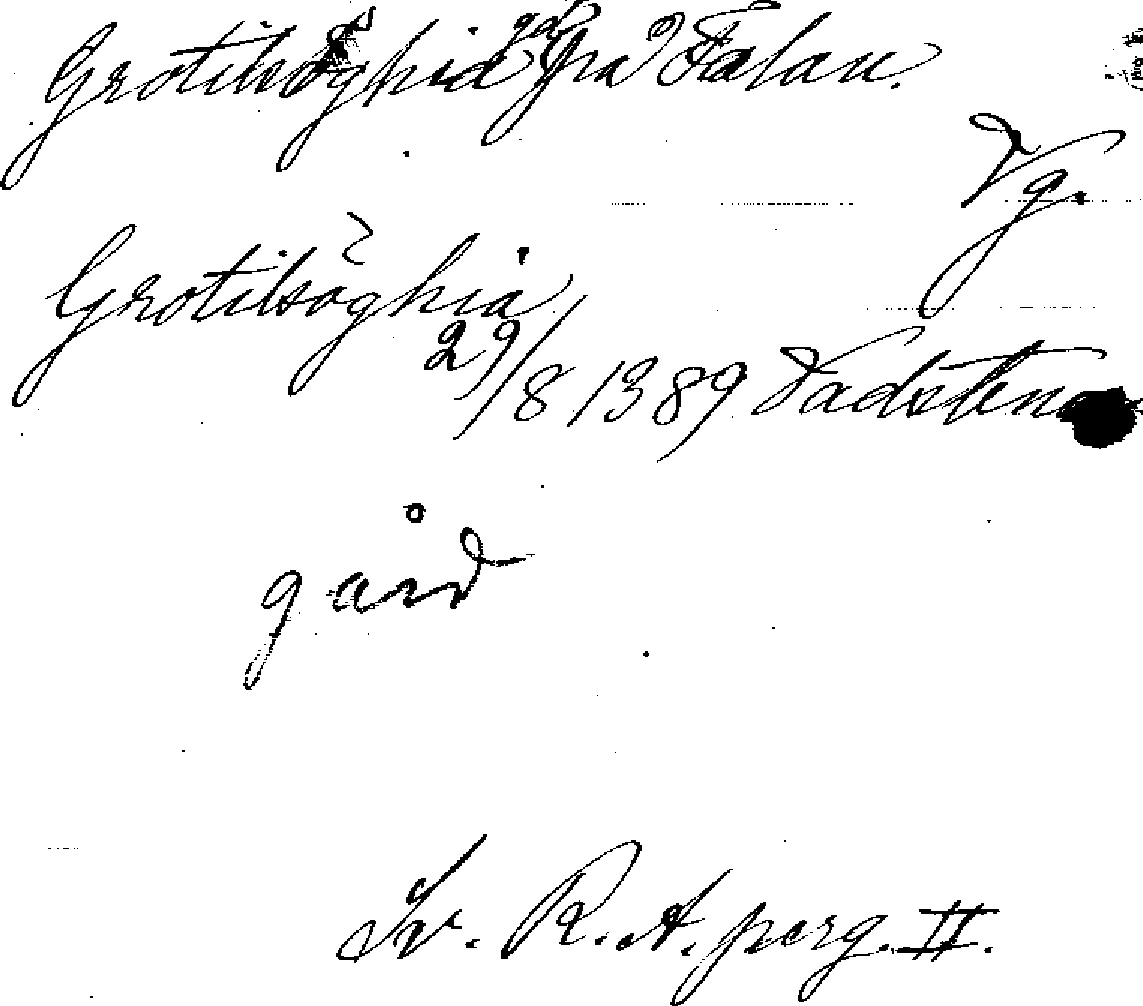 Grotilsøghia på Falan.
Vg.
Grotilsøghia
29/8 1389 Vadstena
gård
Sv. R. A. perg. II.